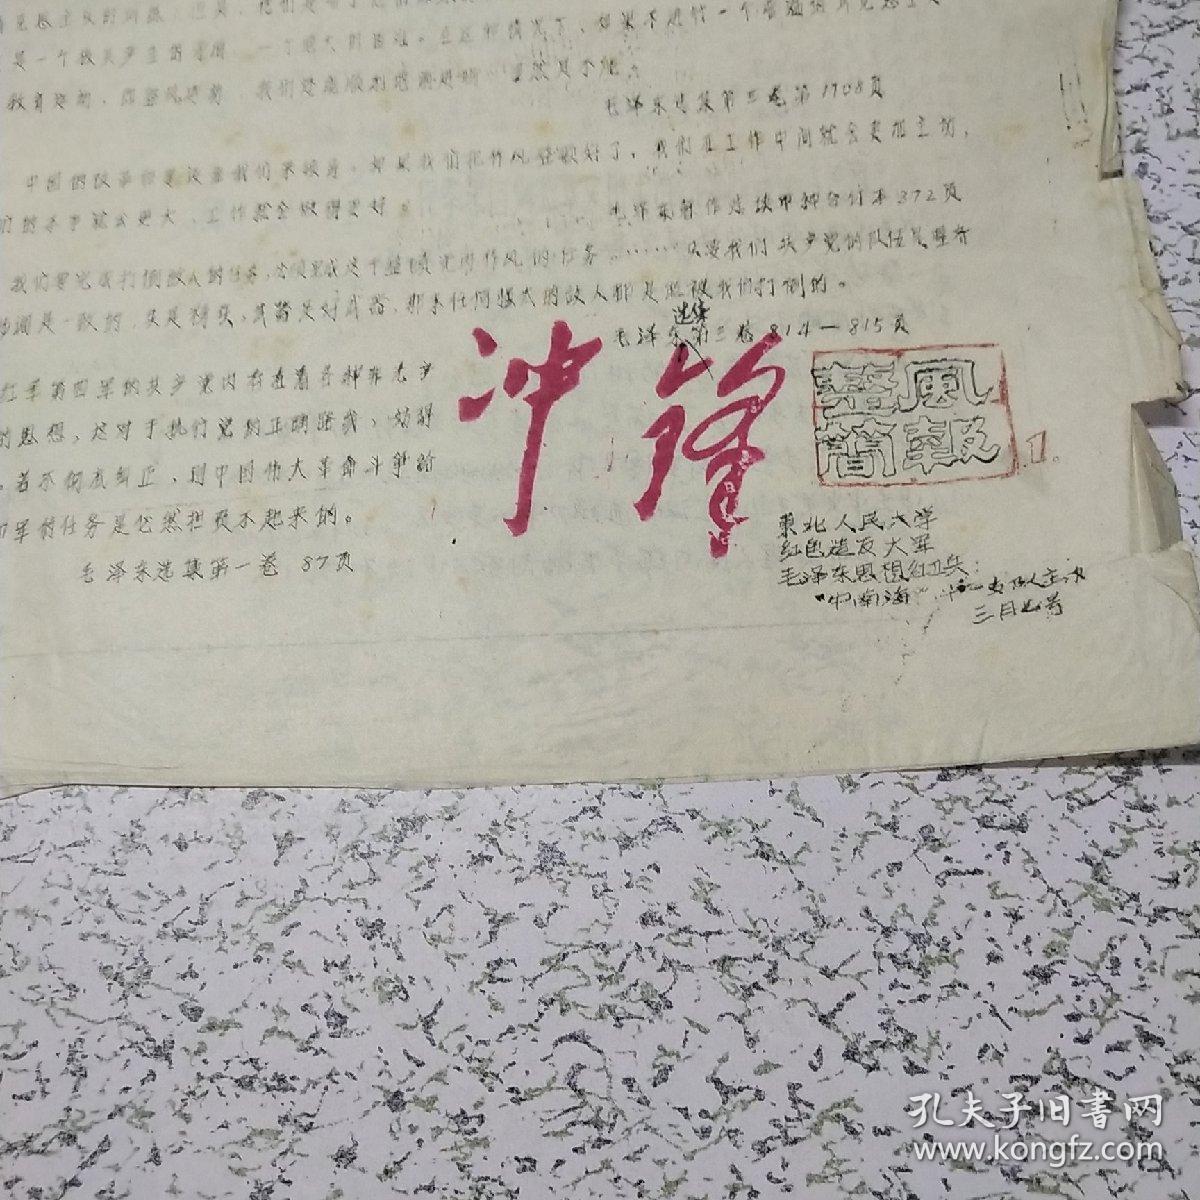 是一个
教育运动，
我们是能顺利地前进的
毛泽东选集第三卷第1708页
中国的改革和建设靠我们来领导。如果我们把作风整顿好了，我们在工作中间就会更加主动，
们的本事就会更大，工作就会做得更好。
毛泽东著作选读甲种合订本372页
我们要完成打倒敌人的任务，必须完成这个整顿党内作风的任务。……只要我们共产党的队伍是整齐
步调是一致的，兵是精兵，武器是好武器，那末任何强大的敌人都是能被我们打倒的。
毛泽东选集第三卷814—815页
红军第四军的共产党内存在着各种非无产
的思想，这对于执行党的正确路线，妨碍
。若不彻底纠正，则中国伟大革命斗争给
四军的任务是必然担负不起来的。
毛泽东选集第一卷 87页
冲锋
整風
簡報
1.
東北人民大学
红色造反大军
毛泽东思想红卫兵：
"中南海"
三月七号
孔夫子旧书网
www.kongfz.com